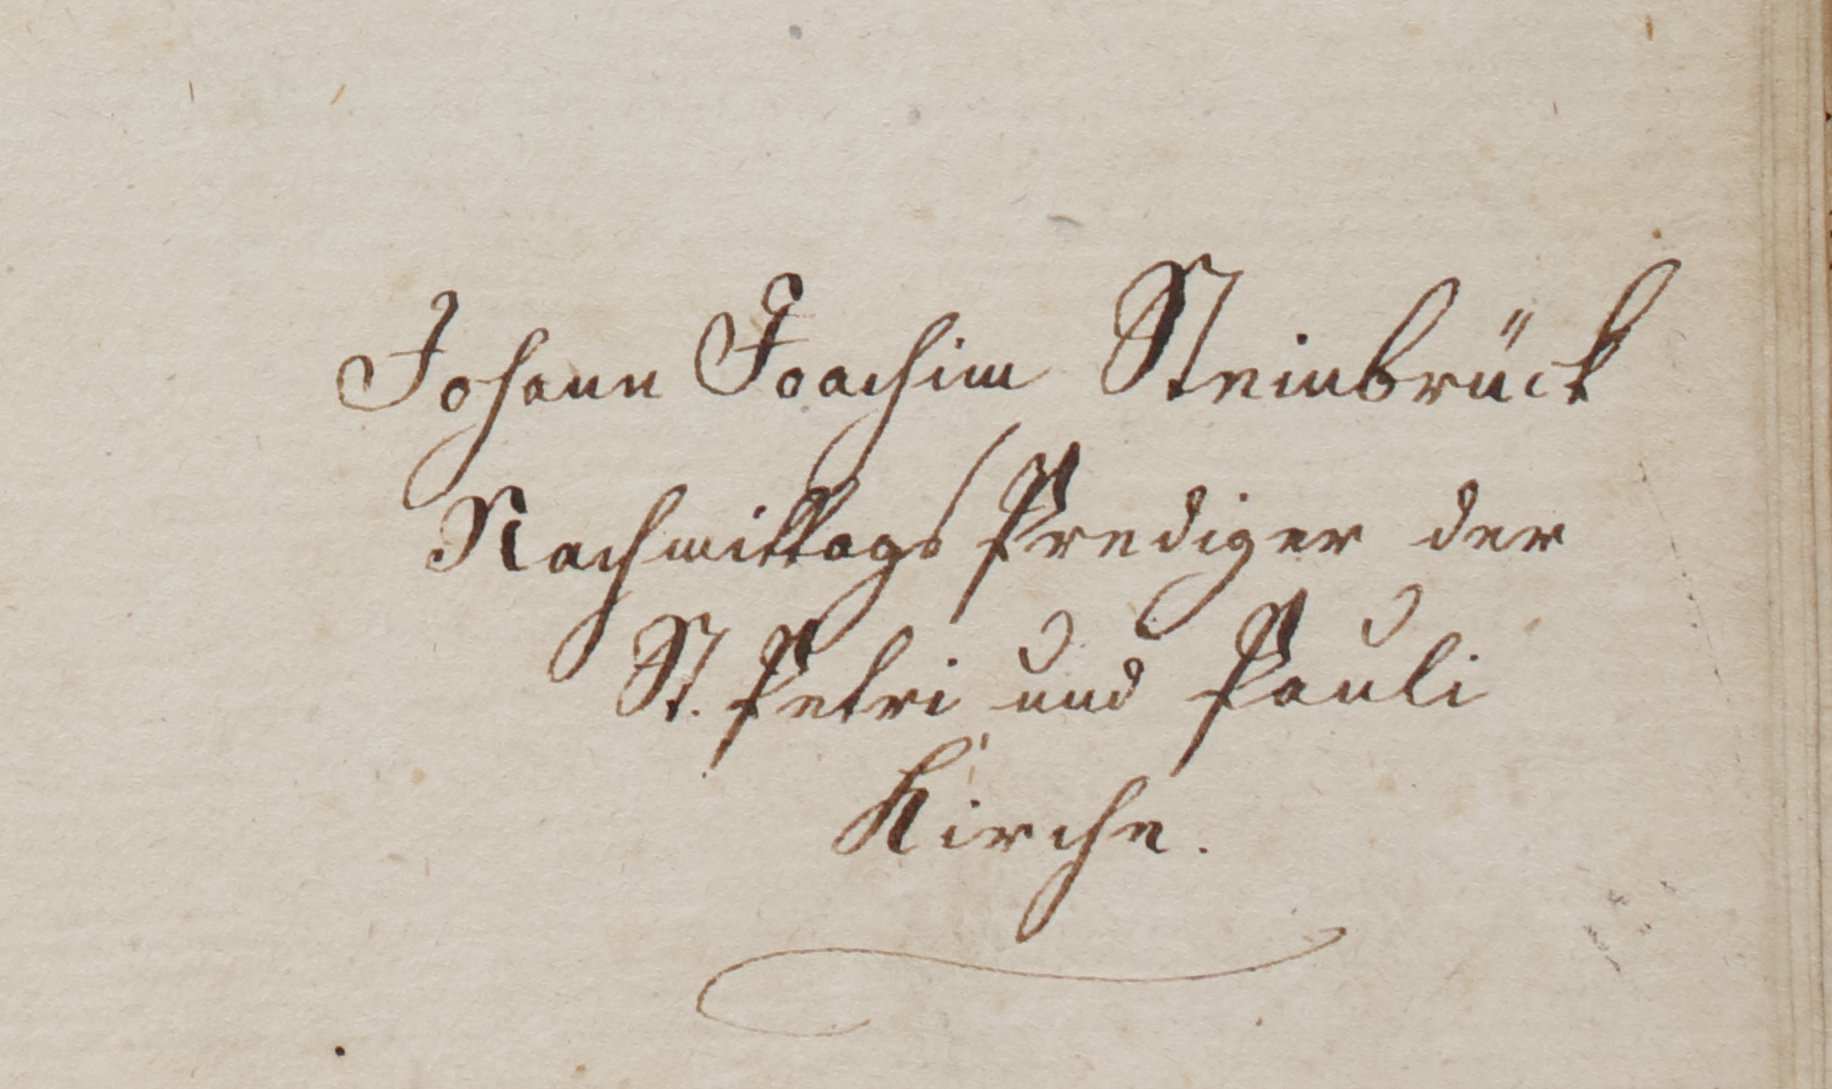 Johann Joachim Steinbrück
Nachmittags Prediger der
St. Petri und Pauli
Kirche.